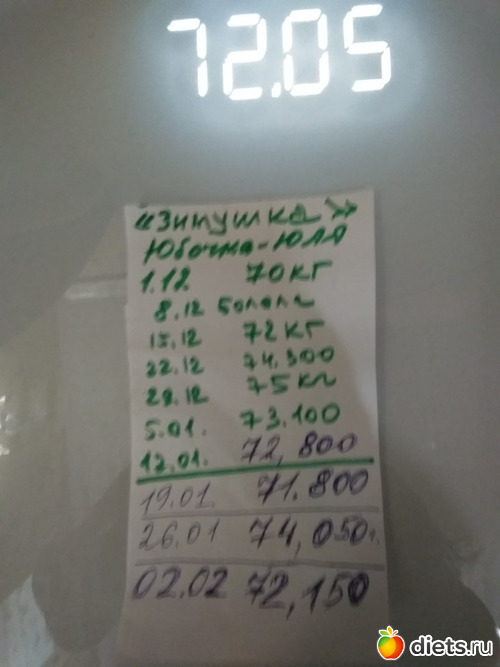 72.05
«Зимушка»
Юбочка-Юля
1.12 70кг
8.12 болела
15.12 72кг
22.12 74.300
29.12 75кг
5.01. 73.100
12.01. 72,800
19.01. 71.800
26.01 74,050г.
02.02 72,150
diets.ru